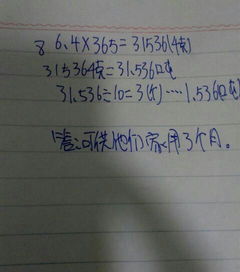 8 6.4×365=31536(千克)
31536千克=31.536吨
31.536÷10=3(个)……1.536吨
答:可供他们家用3个月。